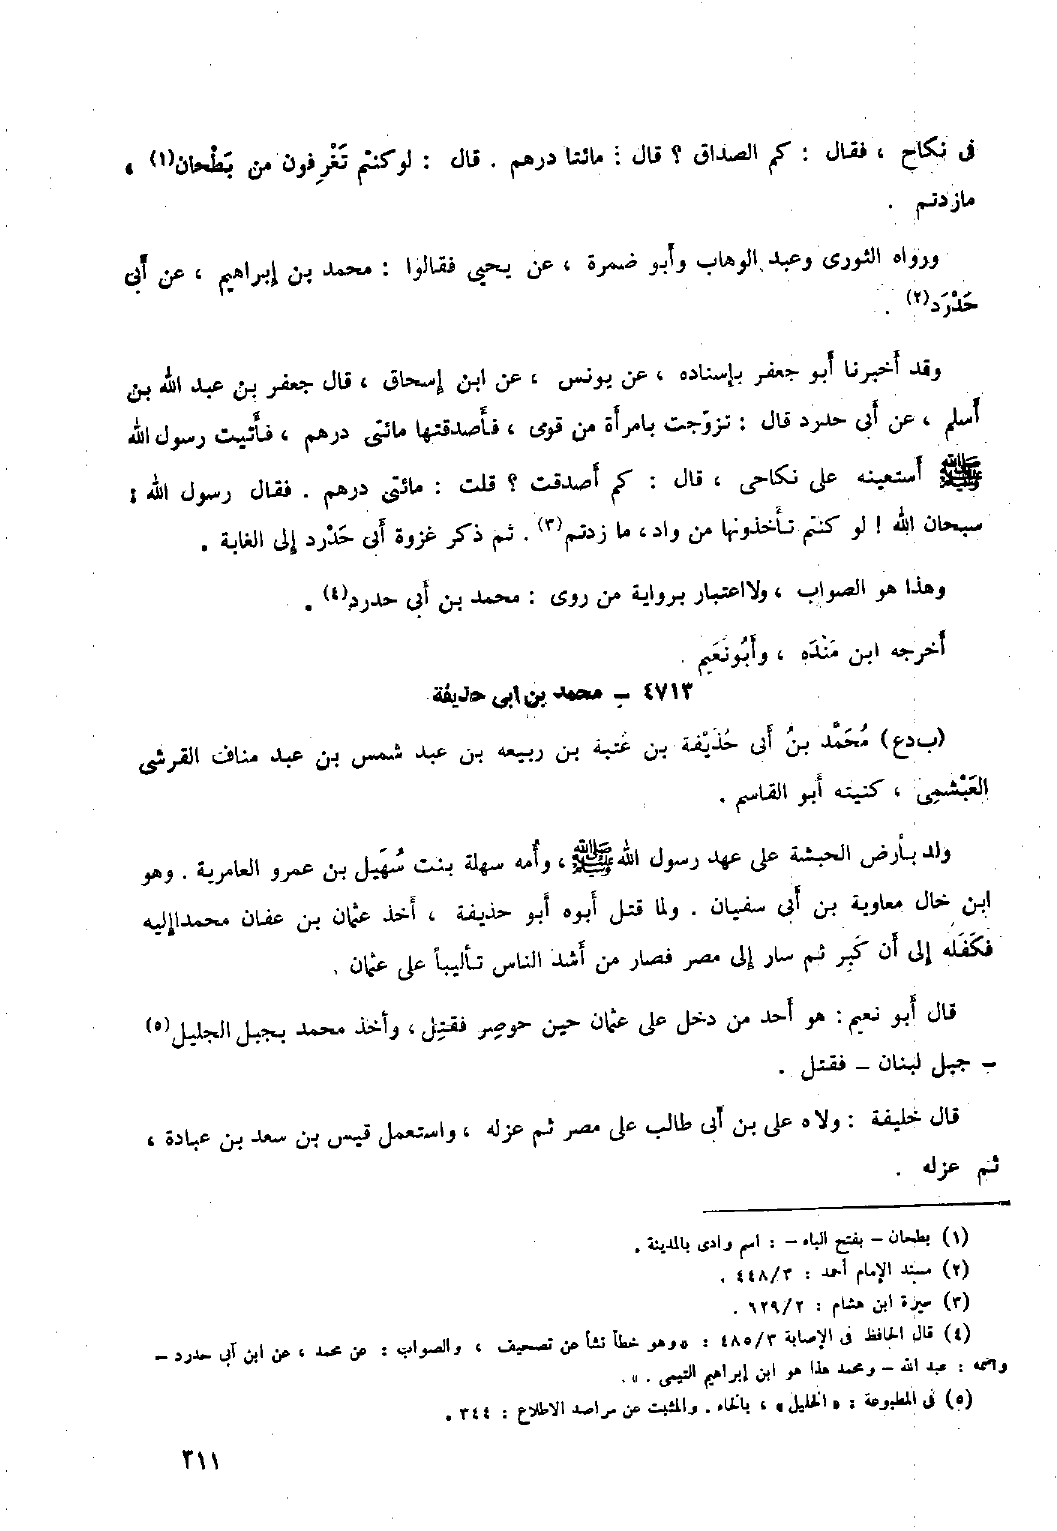 فى نكاح ، فقال : كم الصداق ؟ قال : مائتا درهم . قال : لو كنتم تَغْرِفون من بَطْحان(١) ،
مازدتم .
ورواه الثورى وعبد الوهاب وأبو ضمرة ، عن يحيى فقالوا : محمد بن إبراهيم ، عن أبى
حَدْرَد(٢) .
وقد أخبرنا أبو جعفر بإسناده ، عن يونس ، عن ابن إسحاق ، قال جعفر بن عبد الله بن
أسلم ، عن أبى حدرد قال : تزوّجت بامرأة من قومى ، فأصدقتها مائتى درهم ، فأتيت رسول الله
ﷺ أستعينه على نكاحى ، قال : كم أصدقت ؟ قلت : مائتى درهم . فقال رسول الله :
سبحان الله ! لو كنتم تأخذونها من واد ، ما زدتم(٣) . ثم ذكر غزوة أبى حَدْرد إلى الغابة .
وهذا هو الصواب ، ولا اعتبار برواية من روى : محمد بن أبى حدرد(٤) .
أخرجه ابن مَنْدَه ، وأبُونَعَيم .
٤٧١٣ – محمد بن ابى حذيفة
(ب دع) مُحَمَّد بنُ أبى حُذَيْفة بن عُتبة بن ربيعه بن عبد شمس بن عبد مناف القرشى
العَبْشمِى ، كنيته أبو القاسم .
ولد بأرض الحبشة على عهد رسول الله ﷺ ، وأُمه سهلة بنت سُهَيل بن عمرو العامرية . وهو
ابن خال معاوية بن أبى سفيان . ولما قتل أبوه أبو حذيفة ، أخذ عثمان بن عفان محمداإليه
فكَفَله إلى أن كَبِر ثم سار إلى مصر فصار من أشد الناس تأليباً على عثمان .
قال أبو نعيم : هو أحد من دخل على عثمان حين حوصِر فقتِل ، وأخذ محمد بجبل الجليل(٥)
– جبل لبنان – فقتل .
قال خليفة : ولاه على بن أبى طالب على مصر ثم عزله ، واستعمل قيس بن سعد بن عبادة ،
ثم عزله .
(١) بطحان – بفتح الباء – : اسم وادى بالمدينة .
(٢) مسند الإمام أحمد : ٤٤٨/٣ .
(٣) سيرة ابن هشام : ٦٢٩/٢ .
(٤) قال الحافظ فى الإصابة ٤٨٥/٣ : «وهو خطأ نشأ عن تصحيف ، والصواب : عن محمد ، عن ابن أبى حدرد –
واسمه : عبد الله – ومحمد هذا هو ابن إبراهيم التيمى . » .
(٥) فى المطبوعة : « الخليل » ، بالخاء . والمثبت عن مراصد الاطلاع : ٣٤٤ .
٣١١